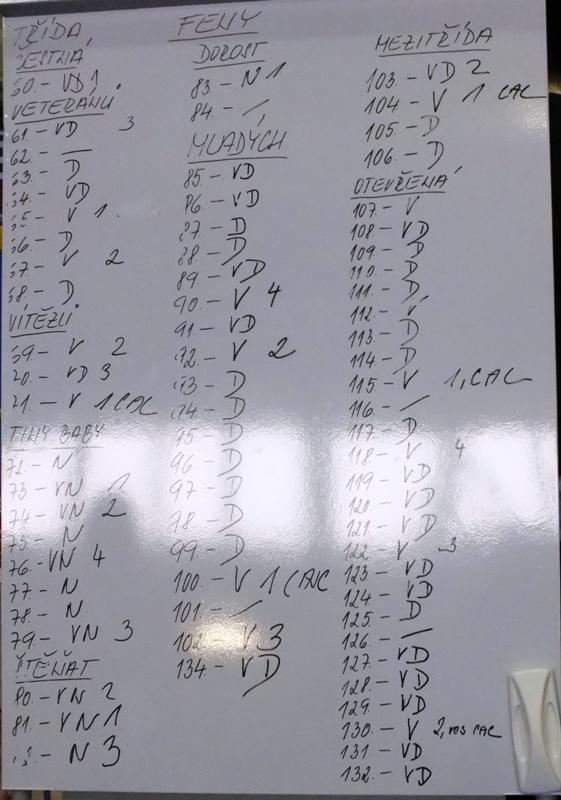 TŘÍDA
FENY
ČESTNÁ
60. – VD 1
VETERÁNŮ
61. – VD 3
62. – —
63. – D
64. – VD
65. – V 1.
66. – D
67. – V 2
68. – D
VÍTĚZŮ
69. – V 2
70. – VD 3
71. – V 1 CAC
TINY BABY
72. – N
73. – VN 1
74 – VN 2
75. – N
76. – VN 4
77. – N
78. – N
79. – VN 3
ŠTĚŇAT
80. – VN 2
81. – VN 1
82. – N 3
DOROST
83. – N 1
84. – —
MLADÝCH
85. – VD
86. – VD
87. – D
88. – D
89. – VD
90. – V 4
91. – VD
92. – V 2
93 – D
94. – D
95 – D
96. – D
97 – D
98 – D
99. – D
100. – V 1 CAJC
101. – —
102. – V 3
134. – VD
MEZITŘÍDA
103. – VD 2
104. – V 1 CAC
105. – D
106. – D
OTEVŘENÁ
107. – V
108. – VD
109. – D
110. – D
111. – D
112. – V
113. – D
114. – D
115. – V 1, CAC
116. – —
117. – D
118. – V 4
119. – VD
120 – VD
121 – VD
122. – V 3
123. – VD
124. – VD
125. – D
126. – —
127. – VD
128. – VD
129. – VD
130. – V 2, res CAC
131. – VD
132. – VD